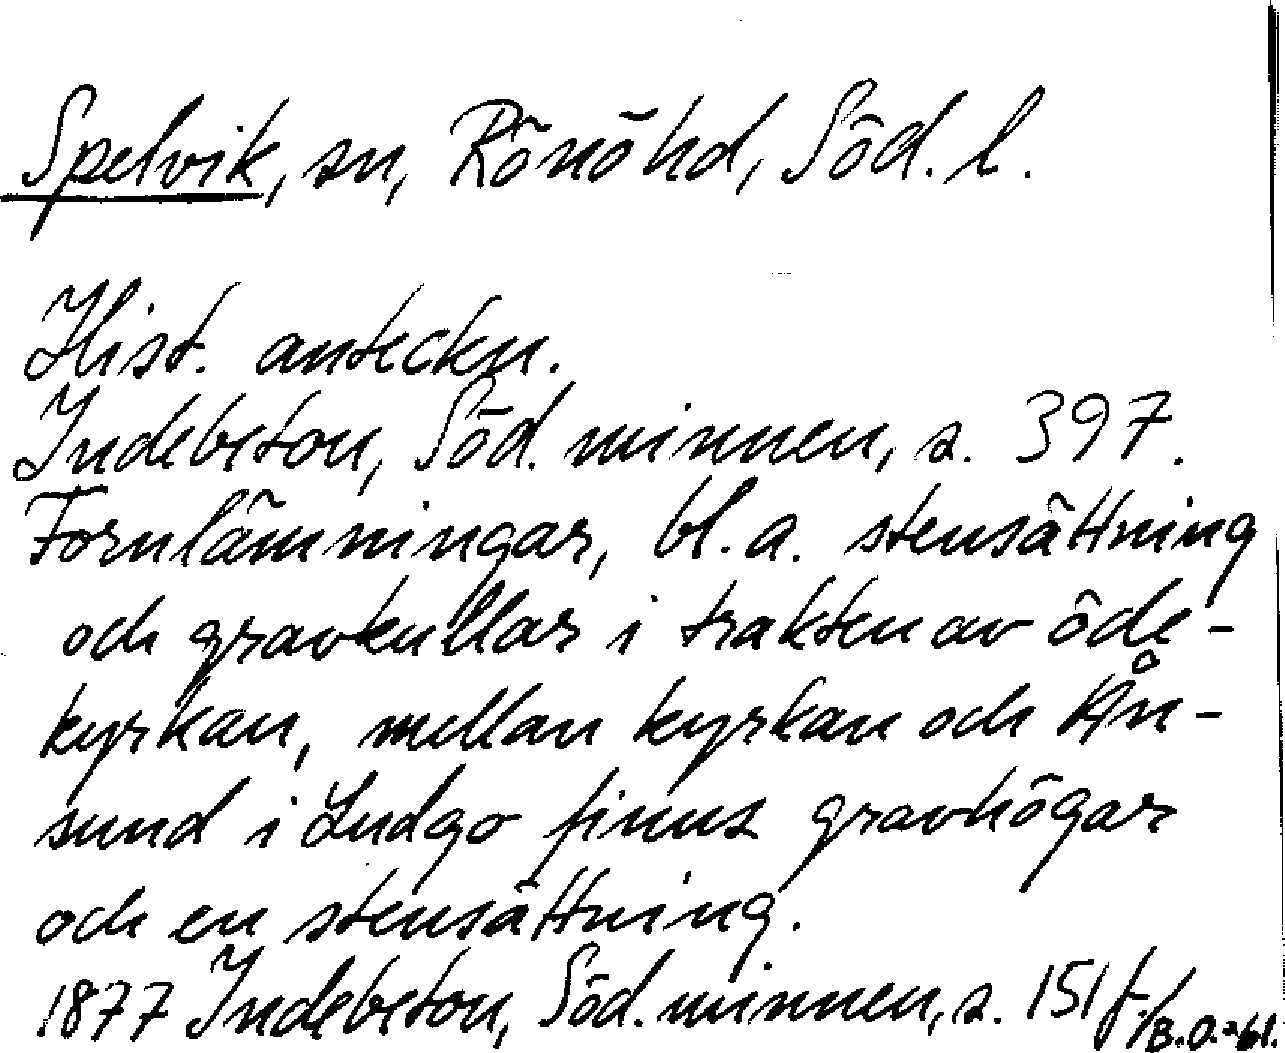 Spelvik, sn, Rönö hd, Söd. l.
Hist. anteckn.
Indebetou, Söd. minnen, s. 397.
Fornlämningar, bl. a. stensättning
och gravkullar i trakten av öde-
kyrkan, mellan kyrkan och Ån-
sund i Ludgo finns gravhögar
och en stensättning.
1877 Indebetou, Söd. minnen, s. 151 f. /B.O.-61.